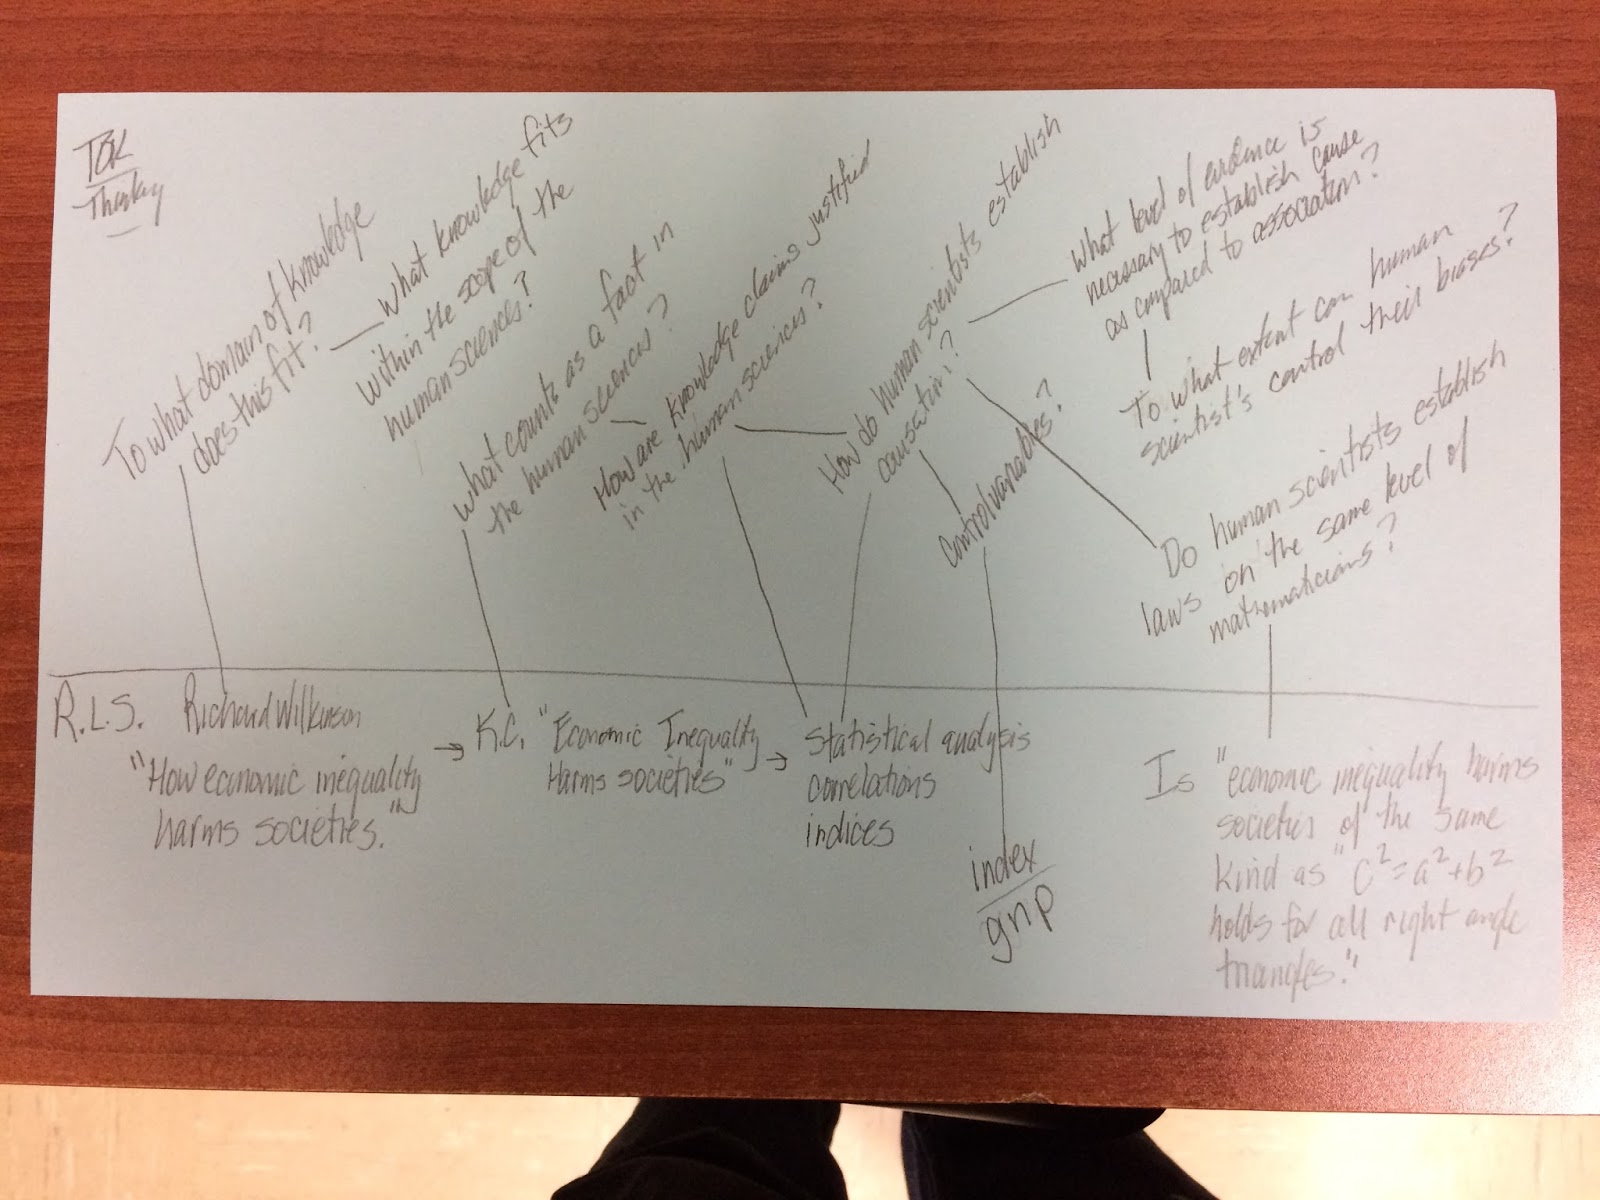 TOK
Thinking
To what domain of knowledge
does this fit?
What knowledge fits
within the scope of the
human sciences?
What counts as a fact in
the human sciences?
How are knowledge claims justified
in the human sciences?
How do human scientists establish
causation?
Control variables?
What level of evidence is
necessary to establish cause
as compared to association?
To what extent can human
scientist's control their biases?
Do human scientists establish
laws on the same level of
mathematicians?
R.L.S. Richard Wilkinson
"How economic inequality
harms societies."
→ K.C. "Economic Inequality
Harms societies" →
statistical analysis
correlations
indices
index
gnp
Is "economic inequality harms
societies of the same
kind as "c²=a²+b²
holds for all right angle
triangles."